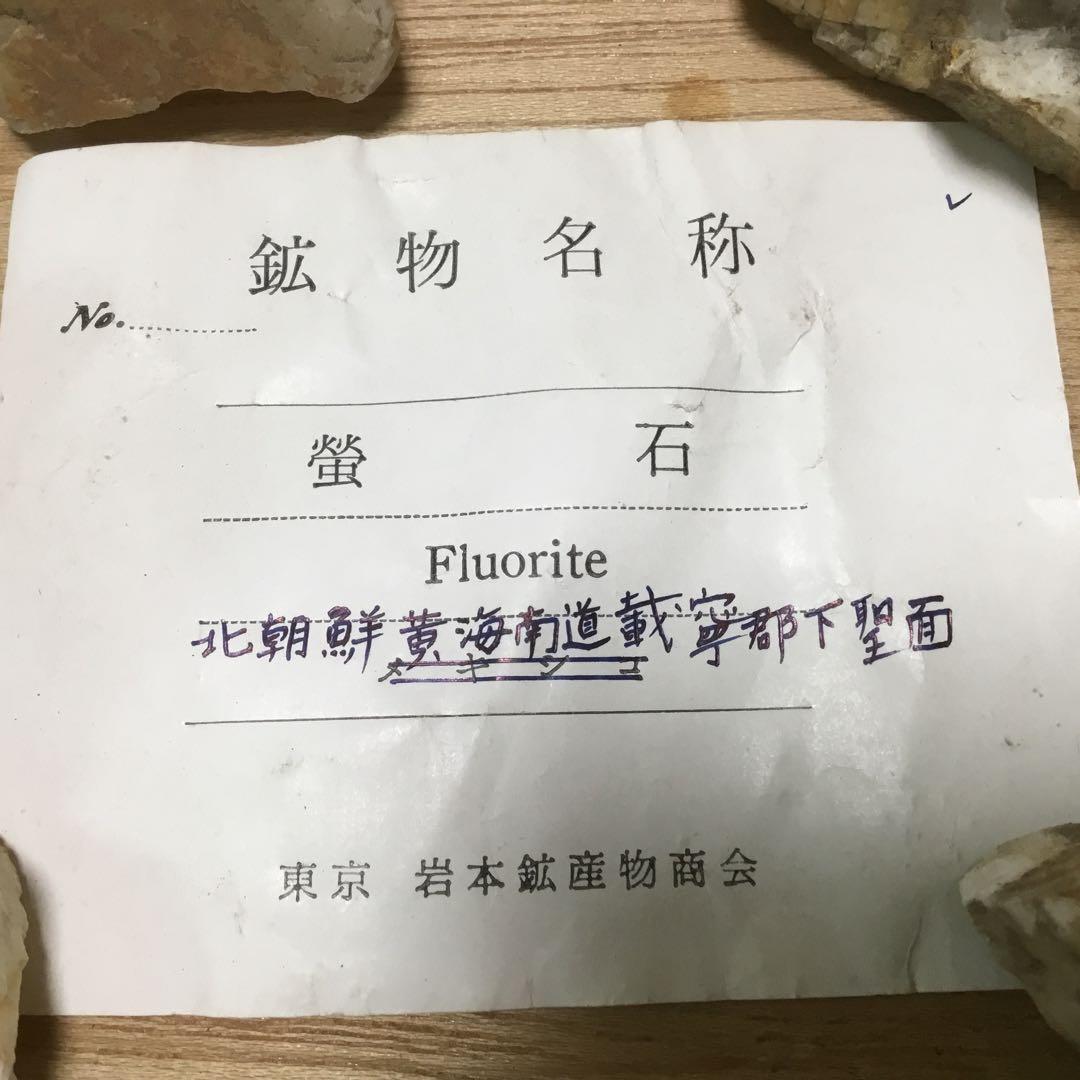 鉱物名称
No.
螢石
Fluorite
北朝鮮黄海南道載寧郡下聖面
メキシコ
東京 岩本鉱産物商会